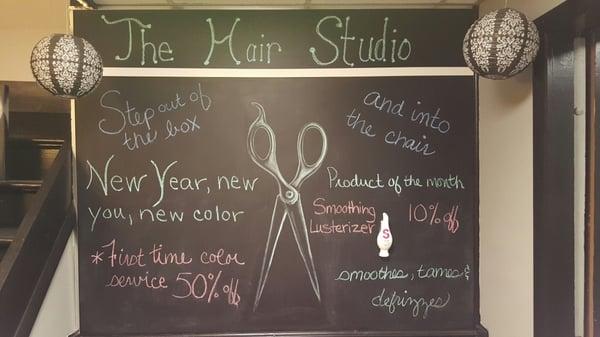 The Hair Studio
Step out of
the box
and into
the chair
New Year, new
you, new color
*First time color
service 50% off
Product of the month
Smoothing
Lusterizer
10% off
S
smoothes, tames &
defrizzes